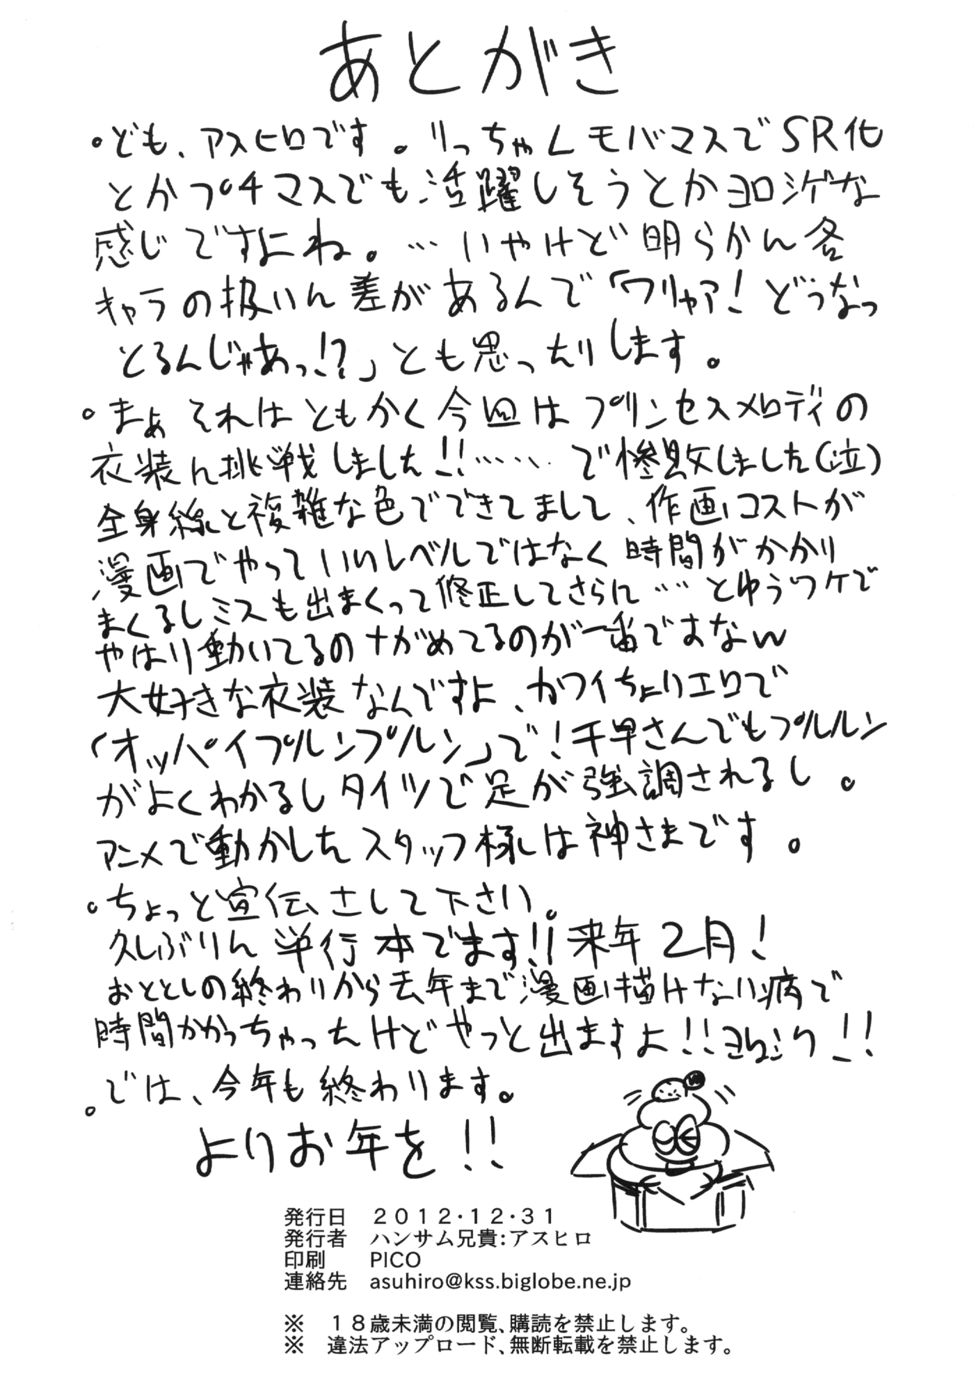 あとがき
。ども、アスヒロです。りっちゃんモバマスでSR化
とかプチマスでも活躍しそうとかヨロシゲな
感じですよね。…いやけど明らかん各
キャラの扱いん差があるんで「ワリャア!どうなっ
とるんじゃあっ!?」とも思ったりします。
。まぁそれはともかく今回はプリンセスメロディの
衣装ん挑戦しました!!……で惨敗しました(泣)
全身線と複雑な色でできてまして、作画コストが
漫画でやっていいレベルではなく時間がかかり
まくるしミスも出まくって修正してさらに…とゆうワケで
やはり動いてるのナがめてるのが一番ですなw
大好きな衣装なんですよ、カワイちょりエロで
「オッパイプルンプルン」で!千早さんでもプルルン
がよくわかるしタイツで足が強調されるし。
アニメで動かしたスタッフ様は神さまです。
。ちょっと宣伝さして下さい。
久しぶりん単行本でます!!来年2月!
おととしの終わりから去年まで漫画描けない病で
時間かかっちゃったけどやっと出ますよ!!ヨロシク!!
。では、今年も終わります。
よりお年を!!
発行日 2012・12・31
発行者 ハンサム兄貴:アスヒロ
印刷 PICO
連絡先 asuhiro@kss.biglobe.ne.jp
※ 18歳未満の閲覧、購読を禁止します。
※ 違法アップロード、無断転載を禁止します。